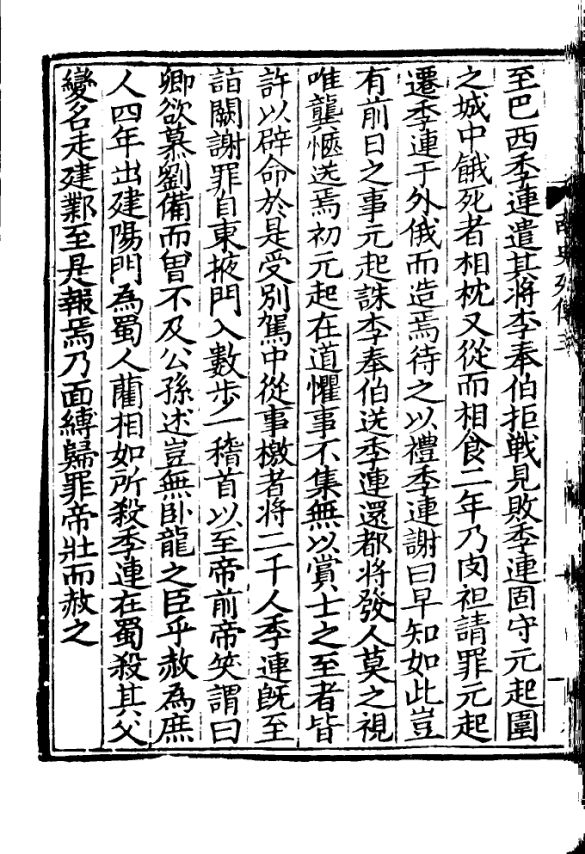 至巴西季連遣其將李奉伯拒戰見敗季連固守元起圍
之城中餓死者相枕又從而相食二年乃肉袒請罪元起
遷季連于外俄而造焉待之以禮季連謝曰早知如此豈
有前日之事元起誅李奉伯送季連還都將發人莫之視
唯龔愜送焉初元起在道懼事不集無以賞士之至者皆
許以辟命於是受別駕中從事檄者將二千人季連旣至
詣闕謝罪自東掖門入數步一稽首以至帝前帝笑謂曰
卿欲慕劉備而曾不及公孫述豈無卧龍之臣乎赦為庶
人四年出建陽門為蜀人藺相如所殺季連在蜀殺其父
變名走建鄴至是報焉乃面縛歸罪帝壯而赦之